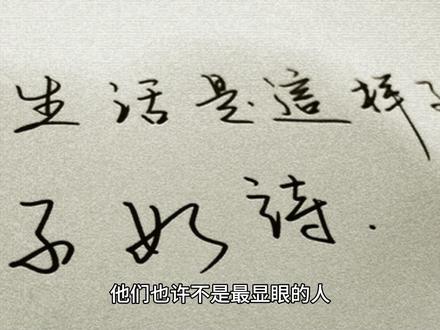 生活是這样
不如詩.
他们也许不是最显眼的人